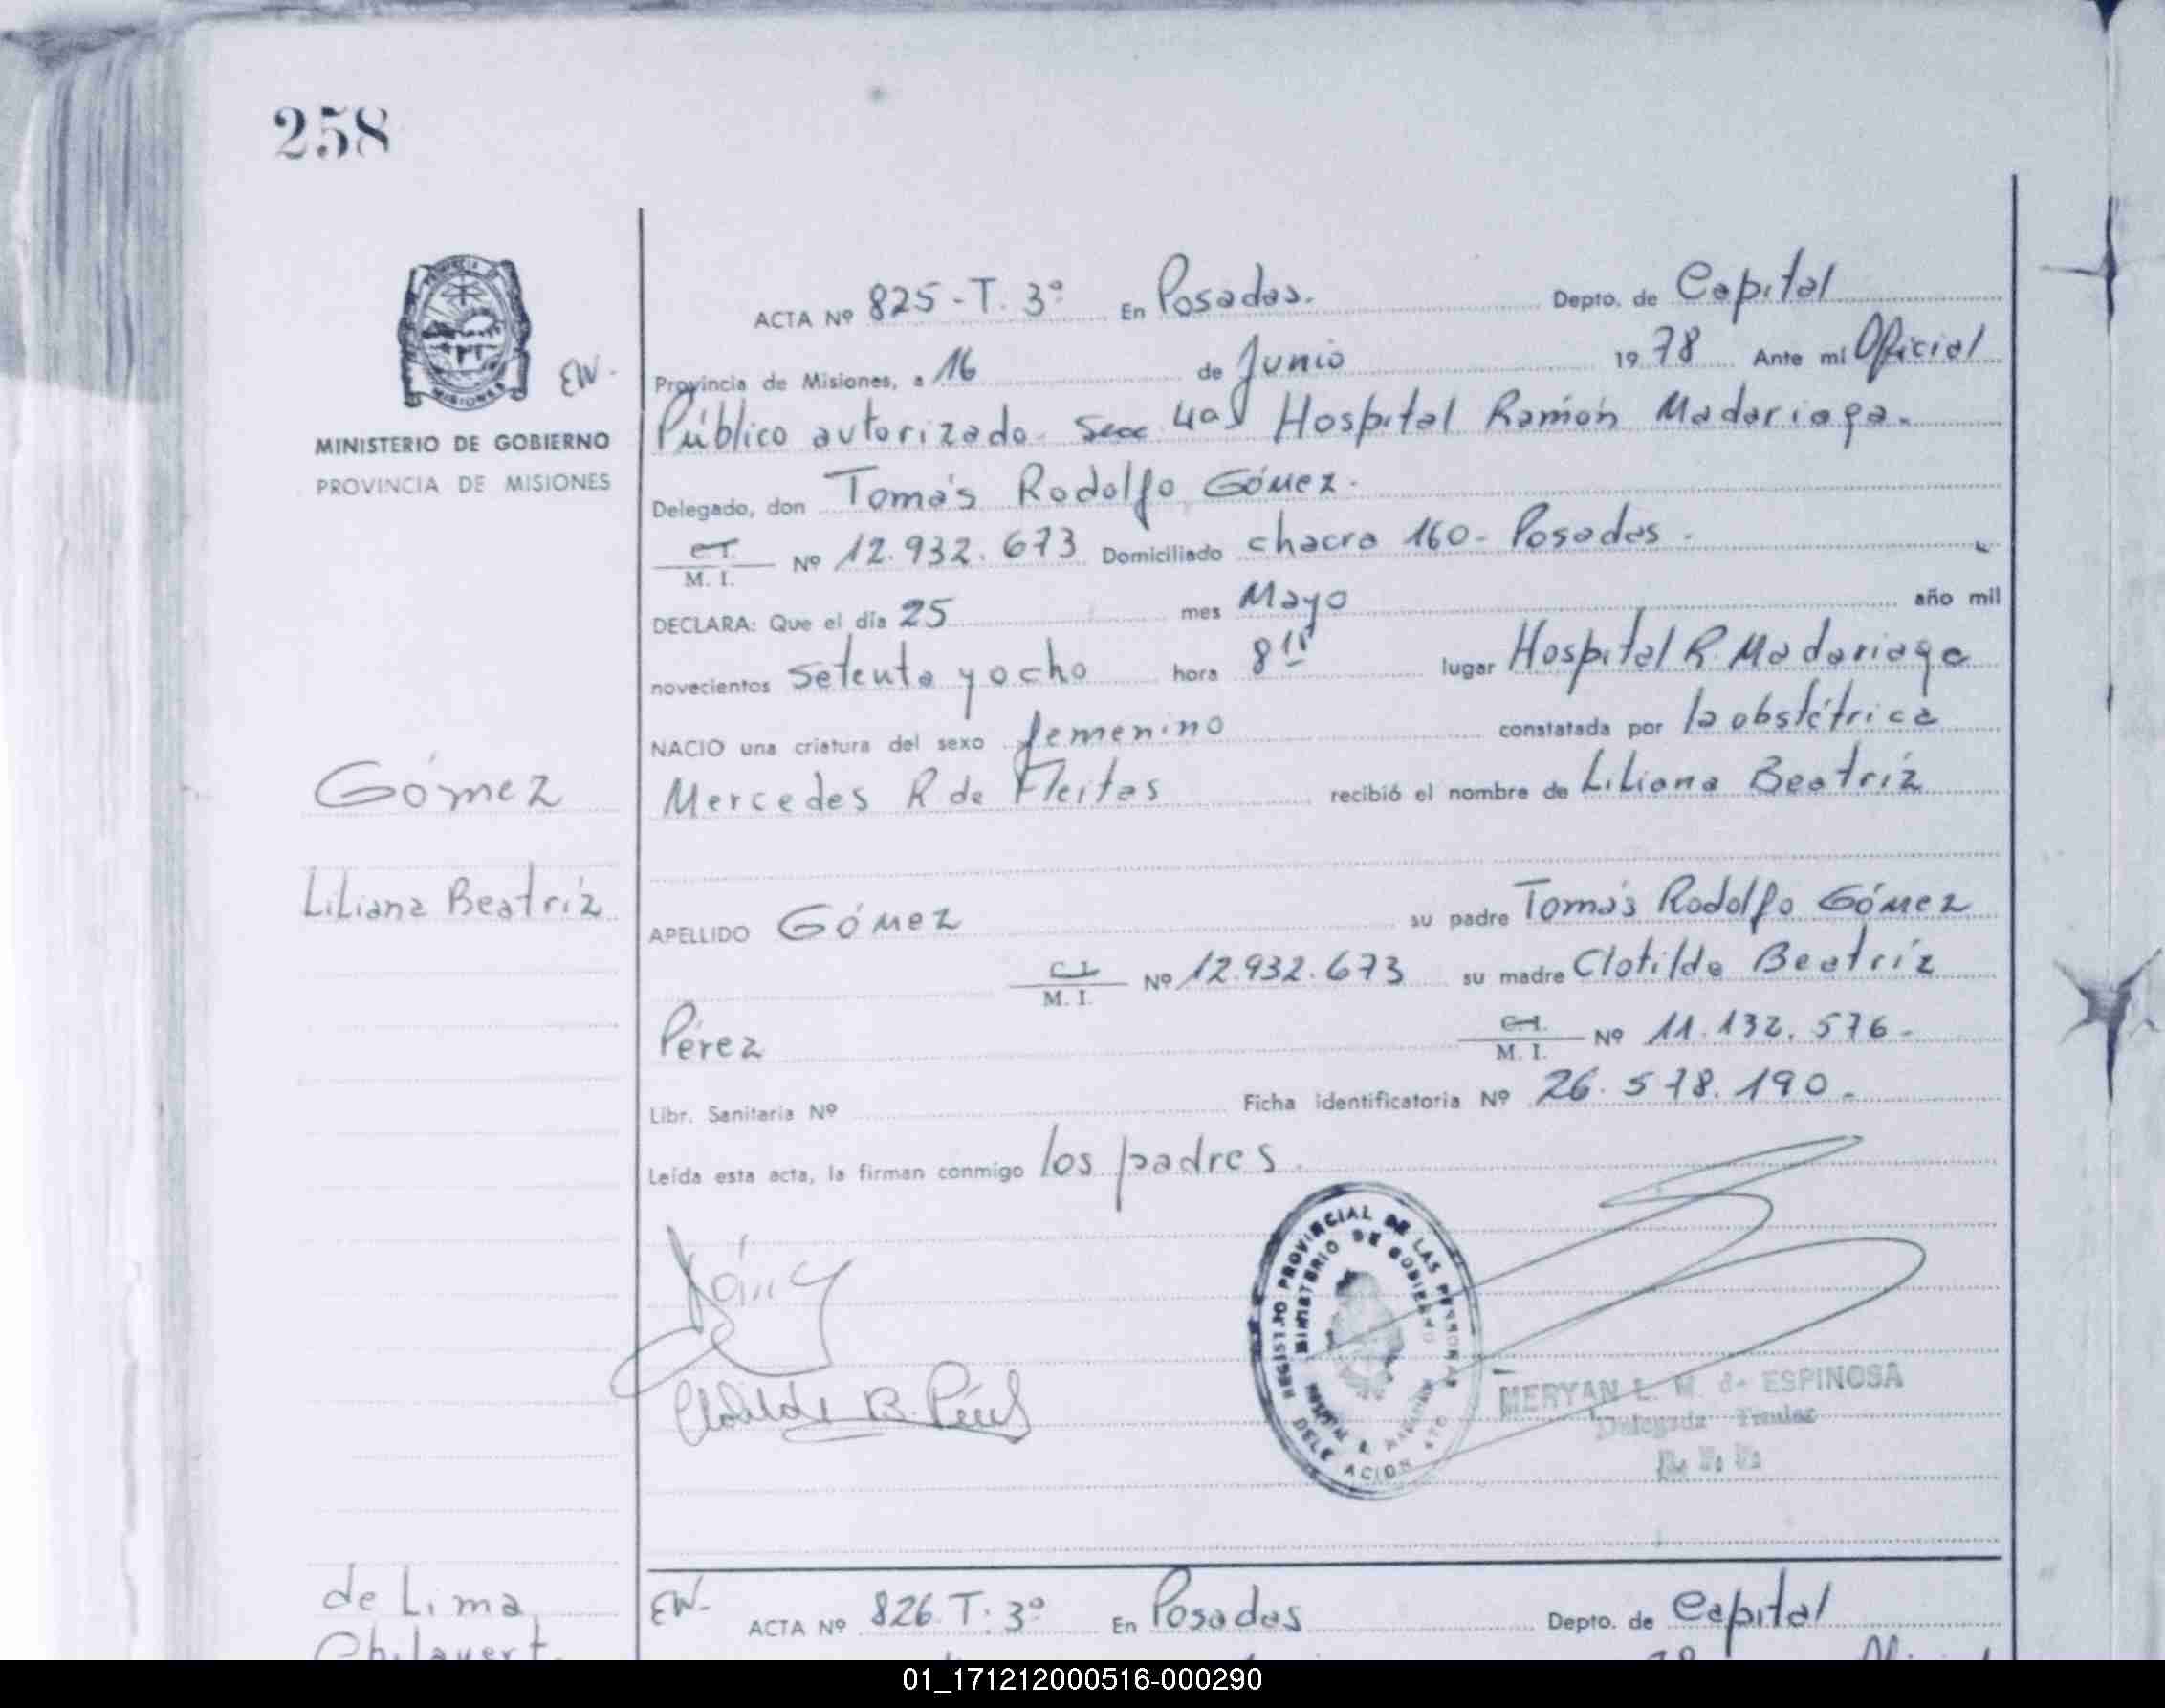 258
ACTA Nº 825-T. 3º En Posadas. Depto. de Capital
EW- Provincia de Misiones, a 16 de Junio 1978 Ante mi Oficial
Público autorizado Secc 4a Hospital Ramón Madariaga.
MINISTERIO DE GOBIERNO
PROVINCIA DE MISIONES
Delegado, don Tomás Rodolfo Gómez.
C.I. M. I. Nº 12.932.673 Domiciliado chacra 160- Posadas.
DECLARA: Que el día 25 mes Mayo año mil
novecientos setenta y ocho hora lugar Hospital R. Madariaga
NACIO una criatura del sexo femenino constatada por la obstétrica
Gómez
Mercedes R de Fleitas recibió el nombre de Liliana Beatríz
Liliana Beatríz
APELLIDO Gómez su padre Tomás Rodolfo Gómez
C.I. M. I. Nº 12.932.673 su madre Clotilde Beatríz
Pérez C.I. M. I. Nº 11.132.576-
Libr. Sanitaria Nº Ficha identificatoria Nº 26.578.190.-
Leída esta acta, la firman conmigo los padres.
REGISTRO PROVINCIAL DE LAS PERSONAS
MINISTERIO DE GOBIERNO
Clotilde B. Pérez
MERYAN L. M. de ESPINOSA
Delegada Titular
de Lima
Chilavert
EW- ACTA Nº 826.T.3º En Posadas Depto. de Capital
01_171212000516-000290